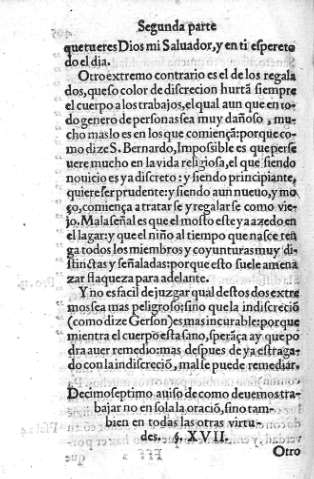 Segunda parte
que tu eres Dios mi Saluador, y en ti espere to
do el dia.
Otro extremo contrario es el de los regala
dos, que so color de discrecion hurtã siempre
el cuerpo a los trabajos, el qual aun que en to-
do genero de personas sea muy dañoso, mu-
cho mas lo es en los que comiençã: porque co-
mo dize S. Bernardo, Impossible es que perse
uere mucho en la vida religiosa, el que siendo
nouicio es ya discreto: y siendo principiante,
quiere ser prudente: y siendo aun nueuo, y mo
ço, comiença a tratarse y regalarse como vie-
jo. Mala señal es que el mosto este ya azedo en
el lagar: y que el niño al tiempo que nasce ten
ga todos los miembros y coyunturas muy di-
stinctas y señaladas: porque esto suele amena
zar flaqueza para adelante.
Y no es facil de juzgar qual destos dos extre
mos sea mas peligroso: sino que la indiscreciõ
(como dize Gerson) es mas incurable: porque
mientra el cuerpo esta sano, sperãça ay que po
dra auer remedio: mas despues de ya estraga-
do con la indiscreciõ, mal se puede remediar.
Decimoseptimo auiso de como deuemos tra-
bajar no en sola la oraciõ, sino tam-
bien en todas las otras virtu-
des. §. XVII.
Otro